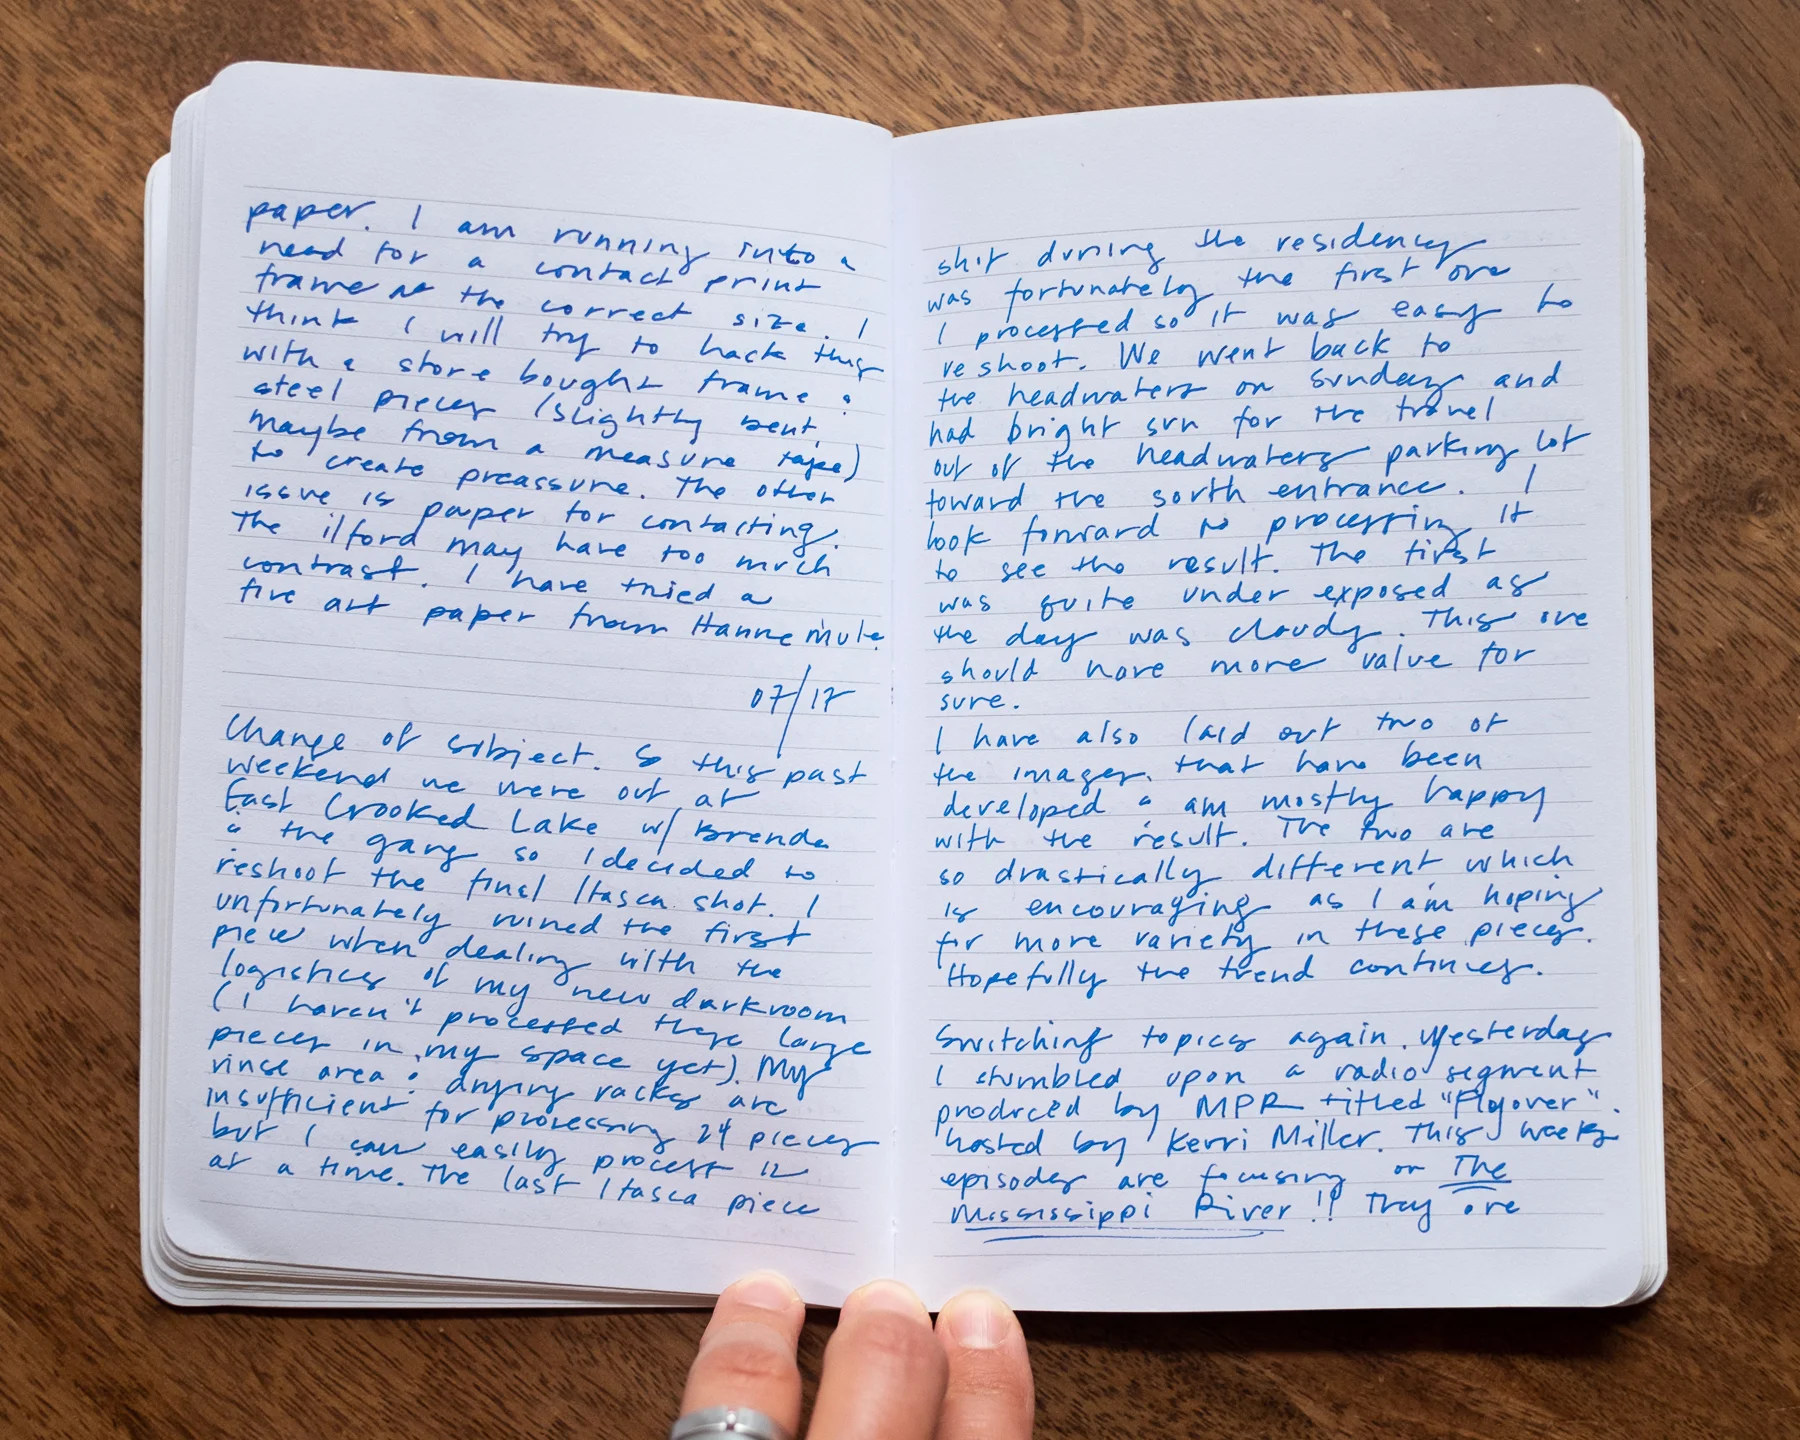 paper. I am running into a
need for a contact print
frame at the correct size. I
think I will try to hack this
with a store bought frame &
steel pieces (slightly bent,
maybe from a measure tape)
to create preassure. The other
issue is paper for contacting.
The ilford may have too much
contrast. I have tried a
fine art paper from Hannemüle.
07/17
Change of subject. So this past
weekend we were out at
East Crooked Lake w/ Brenda
& the gang so I decided to
reshoot the final Itasca shot. I
unfortunately ruined the first
piece when dealing with the
logistics of my new darkroom
(I haven't processed these large
pieces in my space yet). My
rinse area & drying racks are
insufficient for processing 24 pieces
but I can easily process 12
at a time. The last Itasca piece
shit during the residency
was fortunately the first one
I processed so it was easy to
reshoot. We went back to
the headwaters on Sunday and
had bright sun for the travel
out of the headwaters parking lot
toward the south entrance. I
look forward to processing it
to see the result. The first
was quite under exposed as
the day was cloudy. This one
should have more value for
sure.
I have also laid out two of
the images that have been
developed & am mostly happy
with the result. The two are
so drastically different which
is encouraging as I am hoping
for more variety in these pieces.
Hopefully the trend continues.
Switching topics again. Yesterday
I stumbled upon a radio segment
produced by MPR titled "Flyover".
hosted by Kerri Miller. This weeks
episodes are focusing on The
Mississippi River!! They are